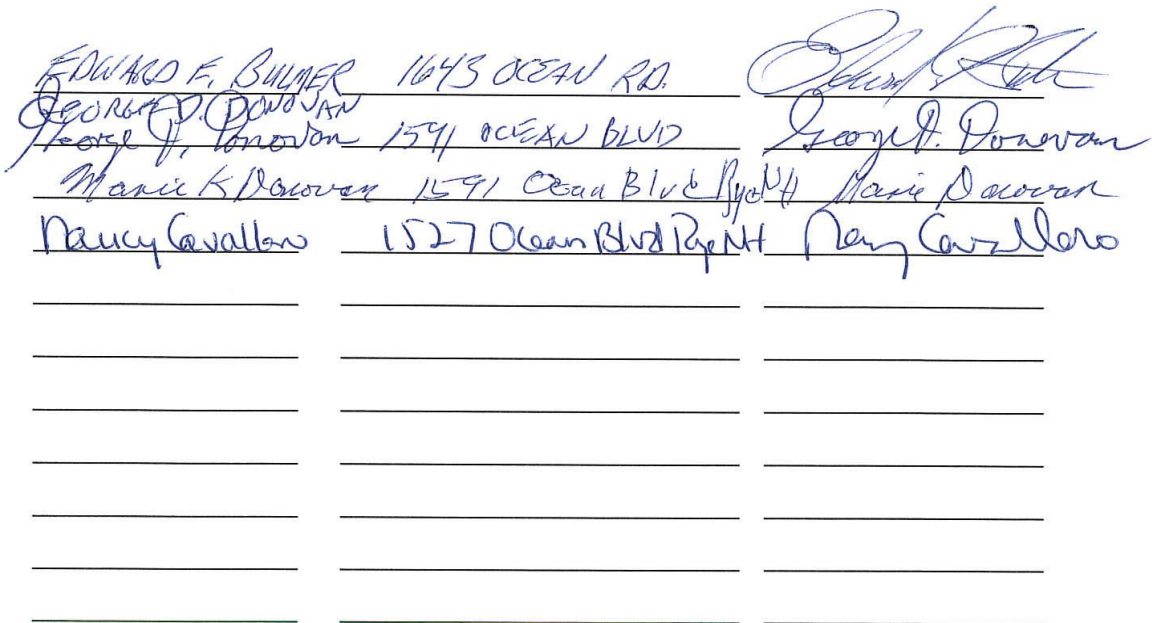 EDWARD F. BULMER 1643 OCEAN RD.
GEORGE D. DONOVAN
George D. Donovan 1591 OCEAN BLVD George D. Donovan
Marie K Donovan 1591 Ocean Blvd Rye NH Marie Donovan
Nancy Cavallaro 1527 Ocean Blvd Rye NH Nancy Cavallaro